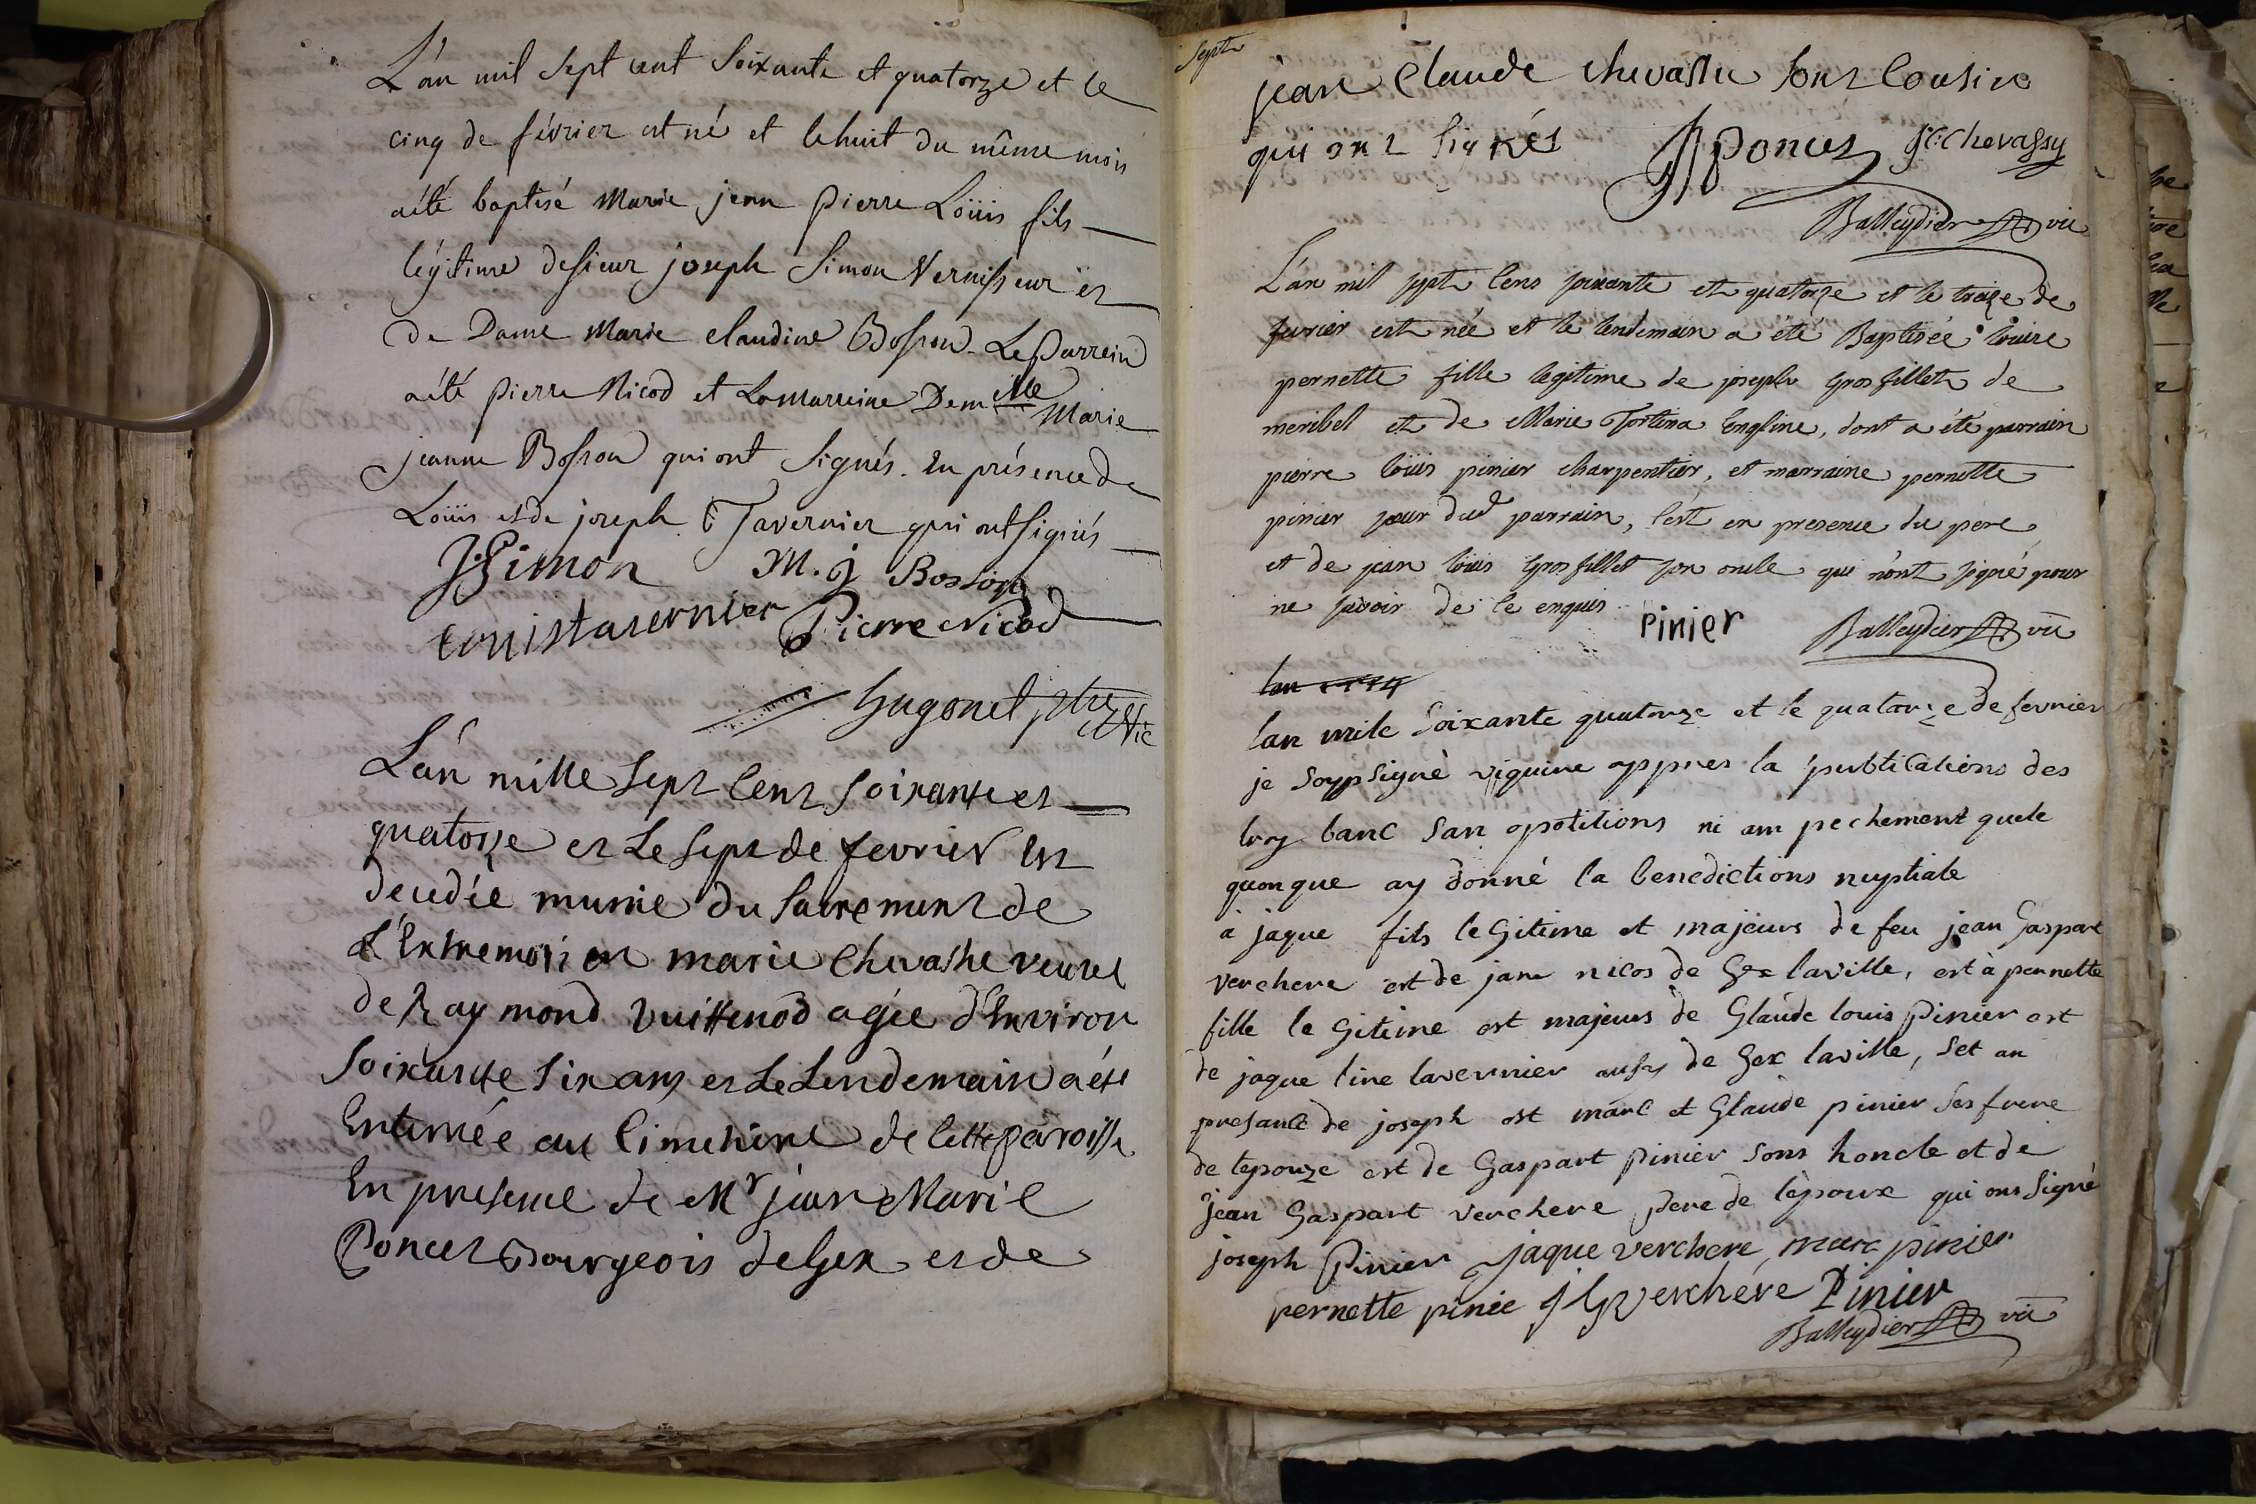 L'an mil sept cent soixante et quatorze et le
cinq de février est né et le huit du même mois
a été baptisé Marie jean pierre Loüis fils
légitime de sieur joseph Simon Vernisseur et
de Dame Marie claudine Bosson. Le Parrein
a été pierre Nicod et La marreine Dem.elle Marie
jeanne Bosson qui ont signés. En présence de
Loüis et de joseph Tavernier qui ont signés
J: Simon M. j Bosson
Louis tavernier Pierre Nicod
hugonet ptre vic
L'an mille sept cent soixante et
quatorze et Le sept de fevrier est
decedée munie du sacrement de
L'Extremonion marie Chevassu veuve
de Raymond Vuittenod agée d'Environ
soixante six ans et Le Lendemain a été
Enterrée au Cimetiere de cette paroisse
En presence de Mr jean Marie
Poncet Bourgeois de Gex et de
Septr
jean Claude chevassu son Cousin
qui ont signés JJ poncet J: C: Chevassu
Balleydier vic
L'an mil sept cens soixante et quatorze et le treize de
fevrier est née et le lendemain a été Baptisée louise
pernette fille legitime de joseph Grosfillet de
meribel et de Marie Tortina Engline, dont a été parrain
pierre loüis pinier charpentier, et marraine pernette
pinier soeur dud parrain, c'est en presence du pere
et de jean loüis Grosfillet son oncle qui n'ont signé pour
ne savoir de ce enquis. Pinier Balleydier vic
lan 1774
lan mile soixante quatorze et le quatorze de fevrier
je soupsigné viquire appres la publications des
troy banc san opotitions ni am pechement quele
quonque ay donné la benedictions nuptiale
à jaque fils leGitime et majeurs de feu jean Gaspart
verchere est de jane nicos de Gex laville, est à pernette
fille le Gitime est majeurs de Glaude louis Pinier est
de jaque line tavernier aussy de Gex laville, set an
presance de joseph est marc et Glaude pinier ses frere
de lepouze est de Gaspart pinier sons honcle et de
jean Gaspart verchere pere de l'époux qui ons signé
joseph Pinier jaque verchere, marc pinier
pernette pinie J G verchére Pinier
Balleydier vic